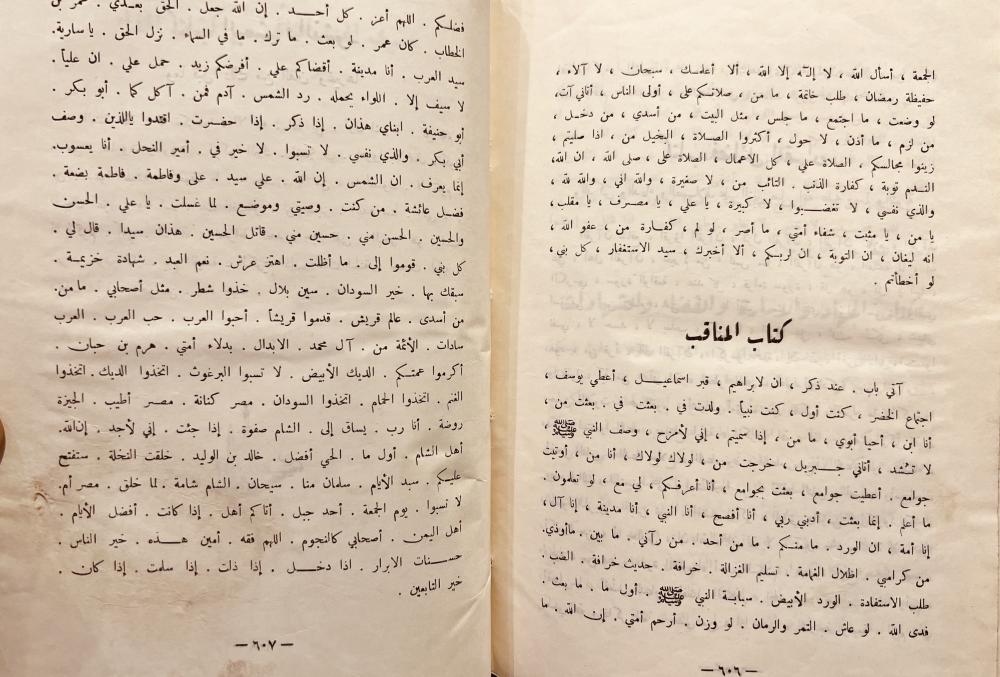 الجمعة ، أسأل الله ، لا إله إلا الله ، ألا أعلمك ، سبحان ، لا آلاء ،
حفيظة رمضان ، طلب خاتمة ، ما من ، صلاتكم على ، أولى الناس ، أتاني آت،
لو وضعت ، ما اجتمع ، ما جلس ، مثل البيت ، من أسدى ، من دخل ،
من لزم ، ما أذن ، لا حول ، أكثروا الصلاة ، البخيل من ، اذا صليتم ،
زينوا مجالسكم ، الصلاة علي ، كل الاعمال ، الصلاة على ، صلى الله ، ان الله،
الندم توبة ، كفارة الذنب . التائب من ، لا صغيرة ، والله اني ، والله لله ،
والذي نفسي ، لا تغضبوا ، لا كبيرة ، يا علي ، يا مصرف ، يا مقلب،
يا من ، يا مثبت ، شفاء أمتي ، ما أصر ، لو لم ، كفارة من ، عفو الله ،
انه ليغان ، ان التوبة ، ان لربكم ، ألا أخبرك ، سيد الاستغفار ، كل بني ،
لو أخطأتم .
كتاب المناقب
آتي باب . عند ذكر ، ان لابراهيم ، قبر اسماعيل ، أعطي يوسف ،
اجتماع الخضر ، كنت أول ، كنت نبياً . ولدت في . بعثت في . بعثت من ،
أنا ابن ، أحيا أبوي ، ما من ، إذا سميتم ، إني لأمزح ، وصف النبي ﷺ ،
لا ، أتاني جبريل ، خرجت من ، لولاك لولاك ، أنا من ، أوتيت
جوامع . أعطيت جوامع ، بعثت بجوامع ، أنا أعرفكم ، لي مع ، لو تعلمون .
ما أعلم . إنما بعثت ، أدبني ربي ، أنا أفصح ، أنا النبي ، أنا مدينة ، إنا آل ،
إنا أمة ، ان الورد . ما منكم . ما من أحد . من رآني . ما بين . ماأوذي.
من كرامي . اظلال الغمامة . تسليم الغزالة . خرافة . حديث خرافة . الضب .
طلب الاستفادة . الورد الأبيض . سبابة النبي ﷺ . أول ما . ما بعث .
فدى الله . لو عاش . التمر والرمان . لو وزن . أرحم أمتي . إن الله . ما
— ٦٠٦ —
فضلكم . اللهم أعز . كل أحد . إن الله جعل . الحق بعدي . عمر بن
الخطاب . كان عمر . لو بعث . ما ترك . ما في السماء . نزل الحق . يا سارية .
سيد العرب . أنا مدينة . أقضاكم علي . أفرضكم زيد . حمل علي . ان علياً .
لا سيف إلا . اللواء يحمله . رد الشمس . آدم فمن . آكل كما . أبو بكر .
أبو حنيفة . ابناي هذان . إذا ذكر . إذا حضرت . اقتدوا باللذين . وصف
أبي بكر . والذي نفسي . لا تسبوا . لا خير في . أمير النحل . أنا يعسوب.
إنما يعرف . ان الشمس . إن الله . علي سيد . على وفاطمة . فاطمة بضعة .
فضل عائشة . من كنت . وصيتي وموضع . لما غسلت . يا علي . الحسن
والحسين . الحسن مني . حسين مني . قاتل الحسين . هذان سيدا . قال لي .
كل بني . قوموا إلى . ما أظلت . اهتز عرش . نعم العبد . شهادة خزيمة .
سبقك بها . خير السودان . سين بلال . خذوا شطر . مثل أصحابي . ما من.
من أسدى . عالم قريش . قدموا قريشاً . أحبوا العرب . حب العرب . العرب
سادات . الأئمة من . آل محمد . الابدال . بدلاء أمتي . هرم بن حيان .
أكرموا عمتكم . الديك الأبيض . لا تسبوا البرغوث . اتخذوا الديك . اتخذوا
الغنم . اتخذوا الحمام . اتخذوا السودان . مصر كنانة . مصر أطيب . الجيزة
روضة . أنا رب . يساق إلى . الشام صفوة . إذا جئت . إني لأجد . إن الله.
أهل الشام . أول ما . الحي أفضل . خالد بن الوليد . خلقت النخلة . ستفتح
عليكم . سيد الأيام . سلمان منا . سيحان . الشام شامة . لما خلق . مصر أم.
لا تسبوا . يوم الجمعة . أحد جبل . أتاكم أهل . إذا كانت . أفضل الأيام .
أهل اليمن . أصحابي كالنجوم . اللهم فقه . أمين هذه . خير الناس .
حسنات الابرار . اذا دخل . إذا ذلت . إذا سلمت . إذا كان .
خير التابعين .
— ٦٠٧ —